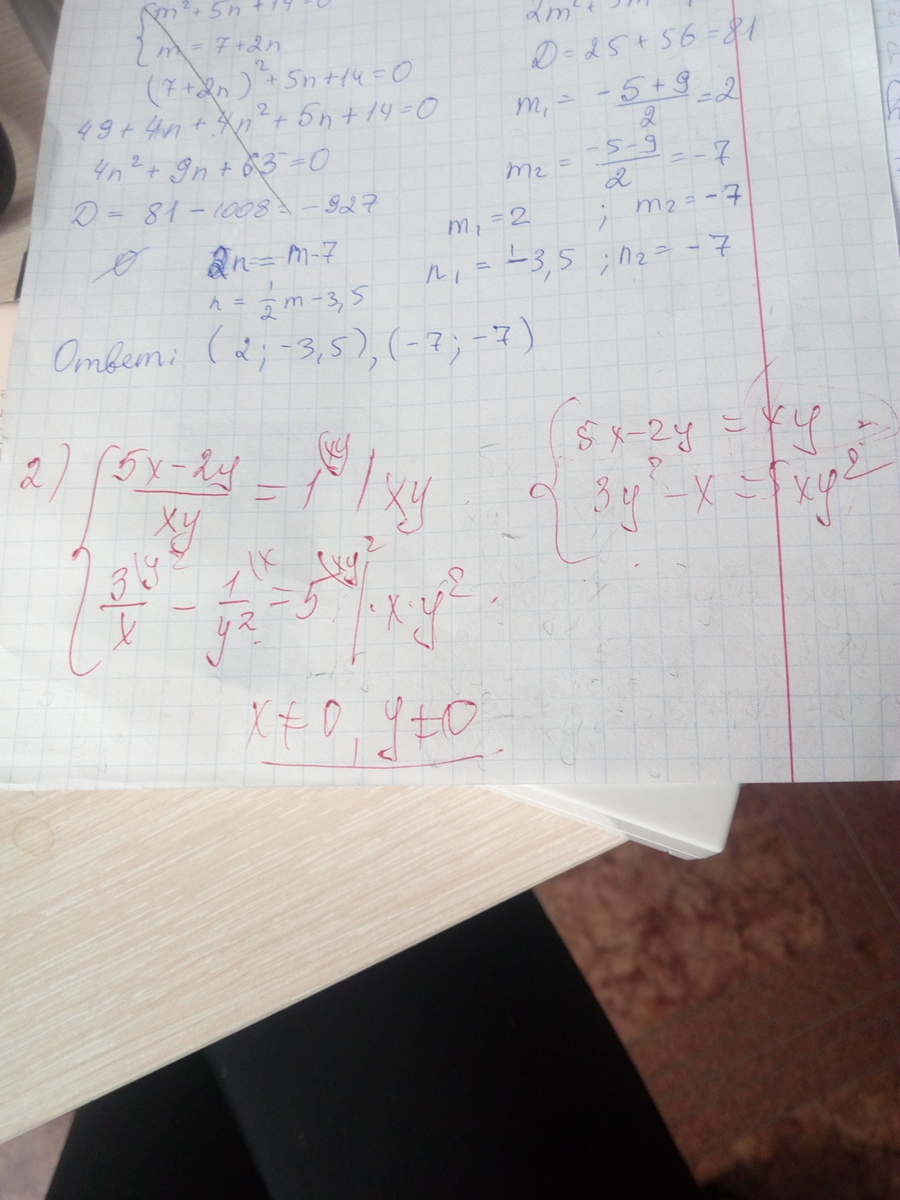 m² + 5n + 14 = 0
m = 7 + 2n
(7 + 2n)² + 5n + 14 = 0
49 + 4n + 4n² + 5n + 14 = 0
4n² + 9n + 63 = 0
D = 81 - 1008 = -927
∅
2n = m - 7
n = 1/2 m - 3,5
D = 25 + 56 = 81
m₁ = (-5 + 9)/2 = 2
m₂ = (-5 - 9)/2 = -7
m₁ = 2 ; m₂ = -7
n₁ = -3,5 ; n₂ = -7
Ответ: (2 ; -3,5), (-7 ; -7)
2) (5x - 2y)/(xy) = 1 (xy | xy
3/x (y² - 1/y² (x = 5 (xy² | · x · y²
x ≠ 0, y ≠ 0
5x - 2y = xy
3y² - x = 5xy²